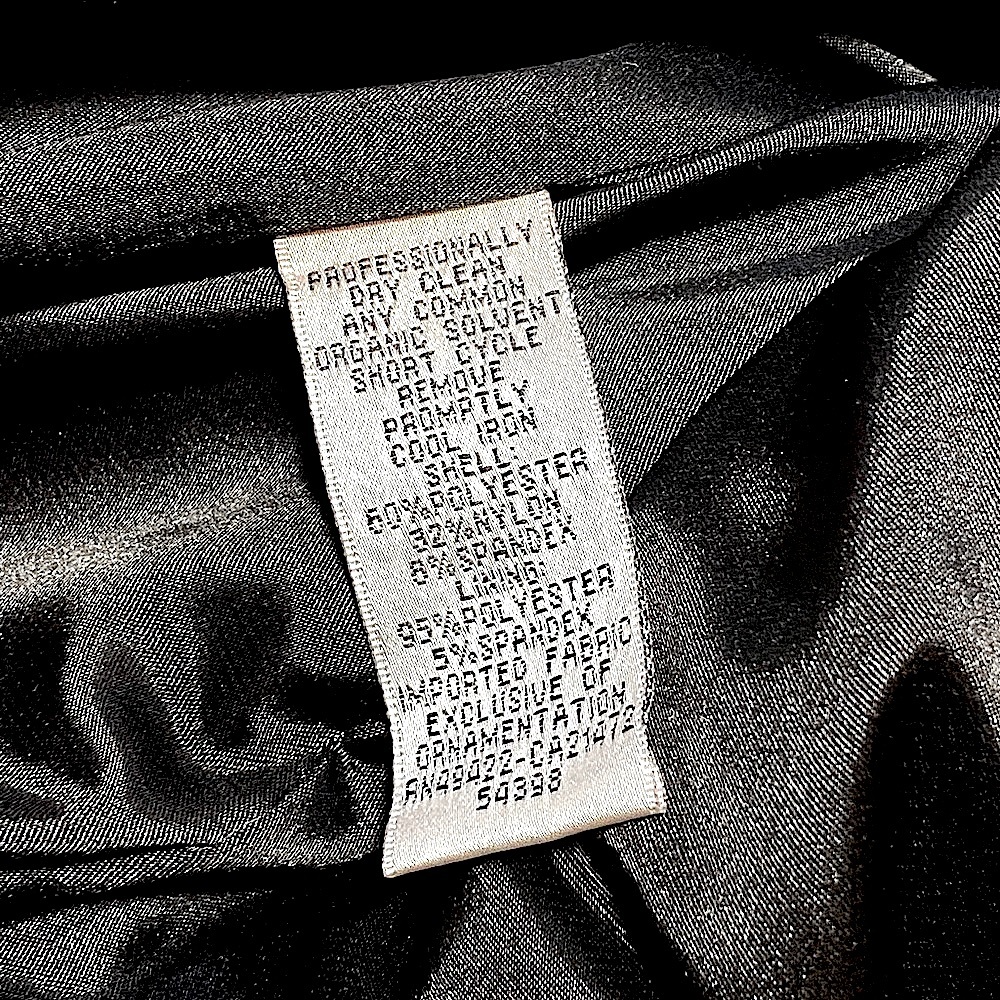 PROFESSIONALLY
DRY CLEAN
ANY COMMON
ORGANIC SOLVENT
SHORT CYCLE
REMOVE
PROMPTLY
COOL IRON
SHELL:
60%POLYESTER
32%NYLON
8%SPANDEX
LINING:
95%POLYESTER
5%SPANDEX
IMPORTED FABRIC
EXCLUSIVE OF
ORNAMENTATION
54398